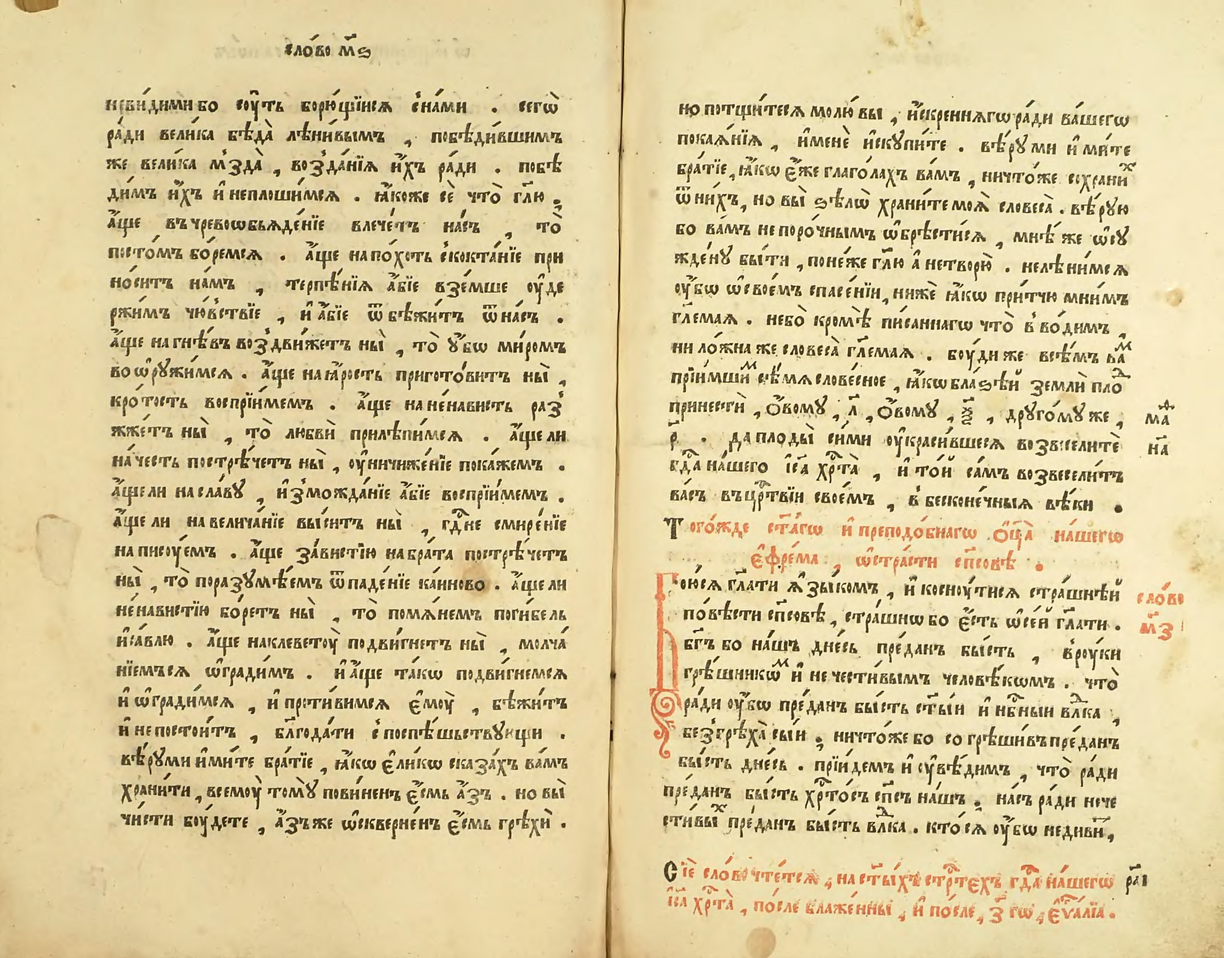 сло́во м҃ѕ
неви́димибо соу́ть борю́щїися сна́ми . сегѡ̀
ра́ди вели́ка бѣда̀ лѣни́вымъ , побѣди́вшимъ
же вели́ка мзда̀ , возда́нїя и́хъ ра́ди . побѣ
ди́мъ и́хъ и неплоши́мся . ꙗ́коже сѐ что̀ гл҃ю ,
а́ще въчревоѡбъяде́нїе влече́тъ на́съ , то̀
посто́мъ бо́ремся . а́ще напо́хоть скокта́нїе при
но́ситъ на́мъ , терпѣ́нїя а́бїе взе́мше оу҆де
ржи́мъ чю́вствїе , и а́бїе ѿбѣжи́тъ ѿна́съ .
а́ще нагнѣ́въ воздви́жетъ ны̀ , то̀ ꙋ́бѡ ми́ромъ
воѡрꙋжи́мся . а́ще наꙗ́рость пригото́витъ ны̀ ,
кро́тость воспрїи́мемъ . а́ще нане́нависть раз
жже́тъ ны̀ , то̀ любвѝ прилѣпи́мся . а́ще ли
на́честь пострѣ́четъ ны̀ , оу҆ничиже́нїе пока́жемъ .
а́ще ли насла́вꙋ , и҆зможда́нїе а́бїе воспрїи́мемъ .
а́ще ли навелича́нїе вы́ситъ ны̀ , гд҃не смире́нїе
написоу́емъ . а́ще за́вистїю набра́та пострѣ́четъ
ны̀ , то̀ поразꙋмѣ́емъ ѿпаде́нїе ка́иново . а́ще ли
не́навистїю бо́ретъ ны̀ , то̀ помя́немъ поги́бель
иса́влю . а́ще наклеветоу̀ подви́гнетъ ны̀ , молча́
нїемъся ѡгради́мъ . и а́ще та́кѡ подви́гнемся
и ѡгради́мся , и проти́вимся є҆моу̀ , бѣжи́тъ
и непостои́тъ , бл҃года́ти споспѣ́шьствꙋющи .
вѣ́рꙋми и́мите бра́тїе , ꙗ́кѡ є҆ли́кѡ сказа́хъ ва́мъ
храни́ти , всемоу̀ томꙋ̀ пови́ненъ є́смь а́зъ . но вы̀
чи́сти боу́дете , а́зъже ѡскверне́нъ є́смь грѣхѝ .
но потщи́теся молю́ вы , и́скреннягѡ ра́ди ва́шего
покая́нїя , и́мене и҆скꙋпи́те . вѣ́рꙋ ми и́мите
бра́тїе, ꙗ́кѡ є́же глаго́лахъ ва́мъ , ничто́же сохрани́х
ѿни́хъ, но вы̀ ѕѣлѡ̀ храни́те моя̀ словеса̀ . вѣ́рꙋю
бо ва́мъ непоро́чнымъ ѡбрѣсти́ся , мнѣ́ же ѡсꙋ
жде́нꙋ бы́ти , поне́же гл҃ю а нетворю̀ . нелѣни́мся
оу́бѡ ѡсвое́мъ спасе́нїи, нижѐ ꙗ́кѡ при́тчю мни́мъ
гл҃емая . небо̀ кромѣ̀ пи́саннагѡ что̀ вво́димъ ,
ни ло́жна же словеса̀ гл҃емая . боу́ди же всѣ́мъ ва́м
прїи́мшим сѣ́мя слове́сное , ꙗ́кѡ бла́ѕѣй землѝ пло́д
принестѝ , ѻ́вомꙋ , л҃ , ѻ́вомꙋ , ѯ҃ , дрꙋго́мꙋ же ,
р҃ . да плоды̀ си́ми оу҆краси́вшеся возвеселите
гд҃а на́шего іс҃а хр҃та̀ , и то́й са́мъ возвесели́тъ
ва́съ въцр҃твїи свое́мъ , вбесконе́чныя вѣ́ки .
мѳ҃а
н҃а
Того́жде ст҃а́гѡ и преподо́бнагѡ ѻц҃а̀ на́шегѡ
є҆фре́ма , ѡстра́сти сп҃совѣ .
Бою́ся гл҃ати язы́комъ , и косноу́тися стра́шнѣй
по́вѣсти сп҃совѣ , стра́шнѡ бо є́сть ѡсе́й гл҃ати .
сло́во
м҃з
бг҃ъ бо на́шъ дне́сь пре́данъ бы́сть , вроу́ки
грѣ́шникѡм и нечести́вымъ человѣ́кѡмъ . что̀
ра́ди оу́бѡ пре́данъ бы́сть ст҃ы́й и нб҃ный вл҃ка ,
безгрѣха̀ сы́й ; ничто́же бо согрѣши́въ пре́данъ
бы́сть дне́сь . прїиде́мъ и оу҆вѣ́димъ , что̀ ра́ди
пре́данъ бы́сть хр҃то́съ сп҃съ на́шъ . на́съ ра́ди нече
сти́вых пре́данъ бы́сть вл҃ка . кто́ся оу́бѡ недиви́т ,
Сїѐ сло́во чте́тся , наст҃ы́хъ стр҃те́хъ гд҃а на́шегѡ
іс҃а хр҃та̀ , по́сле блаже́нны , и по́сле , з҃ гѡ , єѵ҃а́лїа .